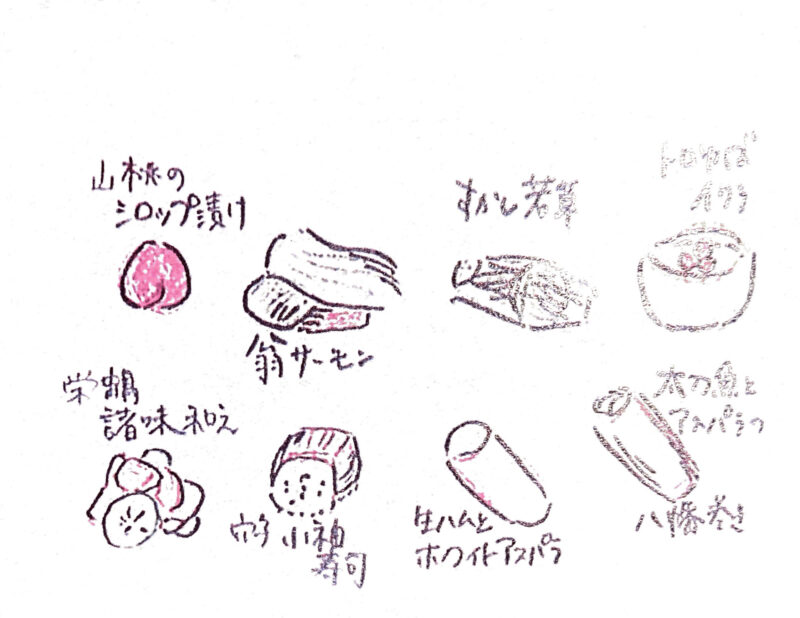 山桃の
シロップ漬け
翁サーモン
トロゆば
イクラ
栄螺
諸味和え
穴子小袖
寿司
生ハムと
ホワイトアスパラ
太刀魚と
アスパラの
八幡巻き